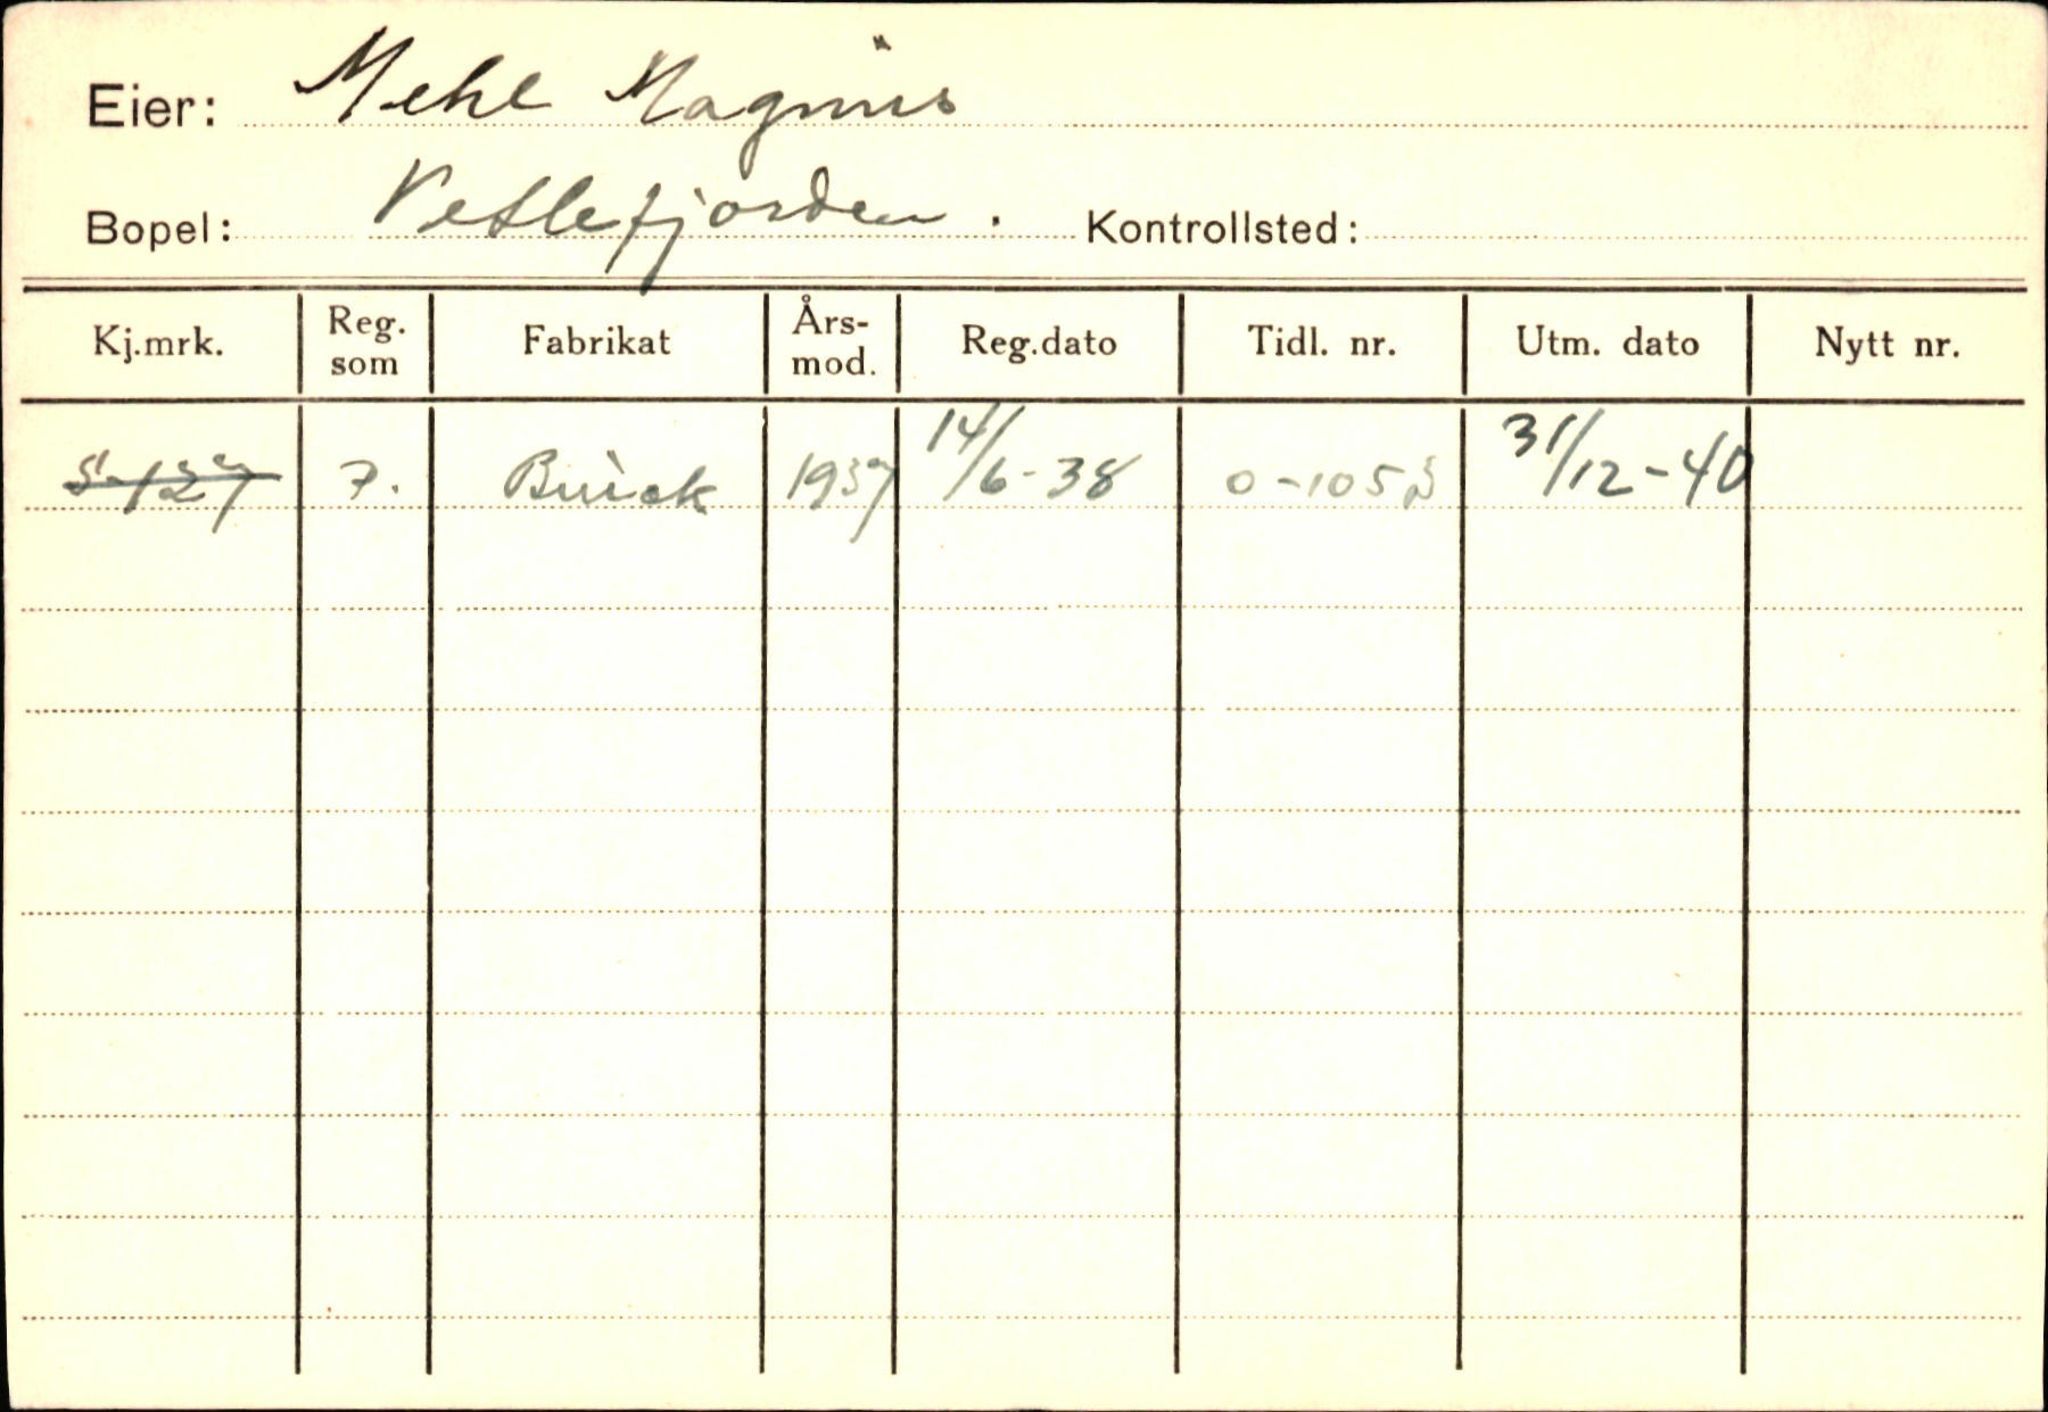 Eier: Mehl Magnus
Bopel: Vetlefjorden. Kontrollsted:
Kj.mrk. Reg. som Fabrikat Års-mod. Reg.dato Tidl. nr. Utm. dato Nytt nr.
S-127 P. Buick 1937 14/6-38 31/12-40